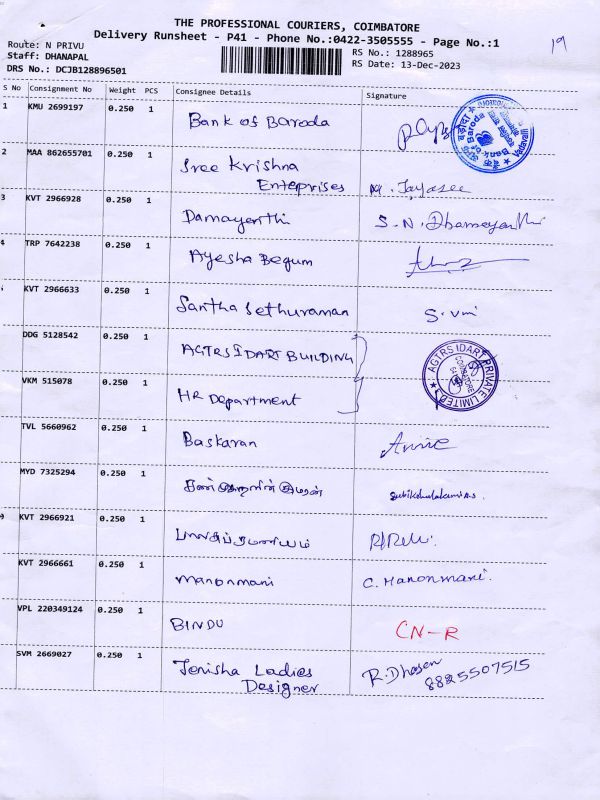 THE PROFESSIONAL COURIERS, COIMBATORE
Delivery Runsheet - P41 - Phone No.:0422-3505555 - Page No.:1
19
Route: N PRIVU
RS No.: 1288965
Staff: DHANAPAL
RS Date: 13-Dec-2023
DRS No.: DCJB128896501
S No Consignment No Weight PCS Consignee Details Signature
1 KMU 2699197 0.250 1 Bank of Baroda
2 MAA 862655701 0.250 1 Sree Krishna
Enteprises M. Jayasee
3 KVT 2966928 0.250 1 Damayenthi S.N. Dhameyanthi
4 TRP 7642238 0.250 1 Ayesha Begum
KVT 2966633 0.250 1 Santha Sethuraman
DDG 5128542 0.250 1 AGTRS IDART BUILDING
AGTRS IDART PRIVATE LIMITED
VKM 515078 0.250 1 HR Department
TVL 5660962 0.250 1 Baskaran
MYD 7325294 0.250 1
9 KVT 2966921 0.250 1 பாலசுப்ரமணியம்
KVT 2966661 0.250 1 Manonmani C. Manonmani.
VPL 220349124 0.250 1 BINDU CN-R
SVM 2669027 0.250 1 Jenisha Ladies
Designer R. Dhasen
8825507515